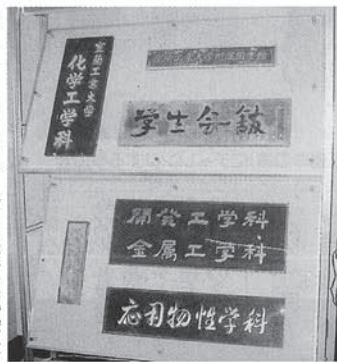 室蘭工業大学
化学工学科
学生会舘
開發工学科
金属工学科
応用物性学科